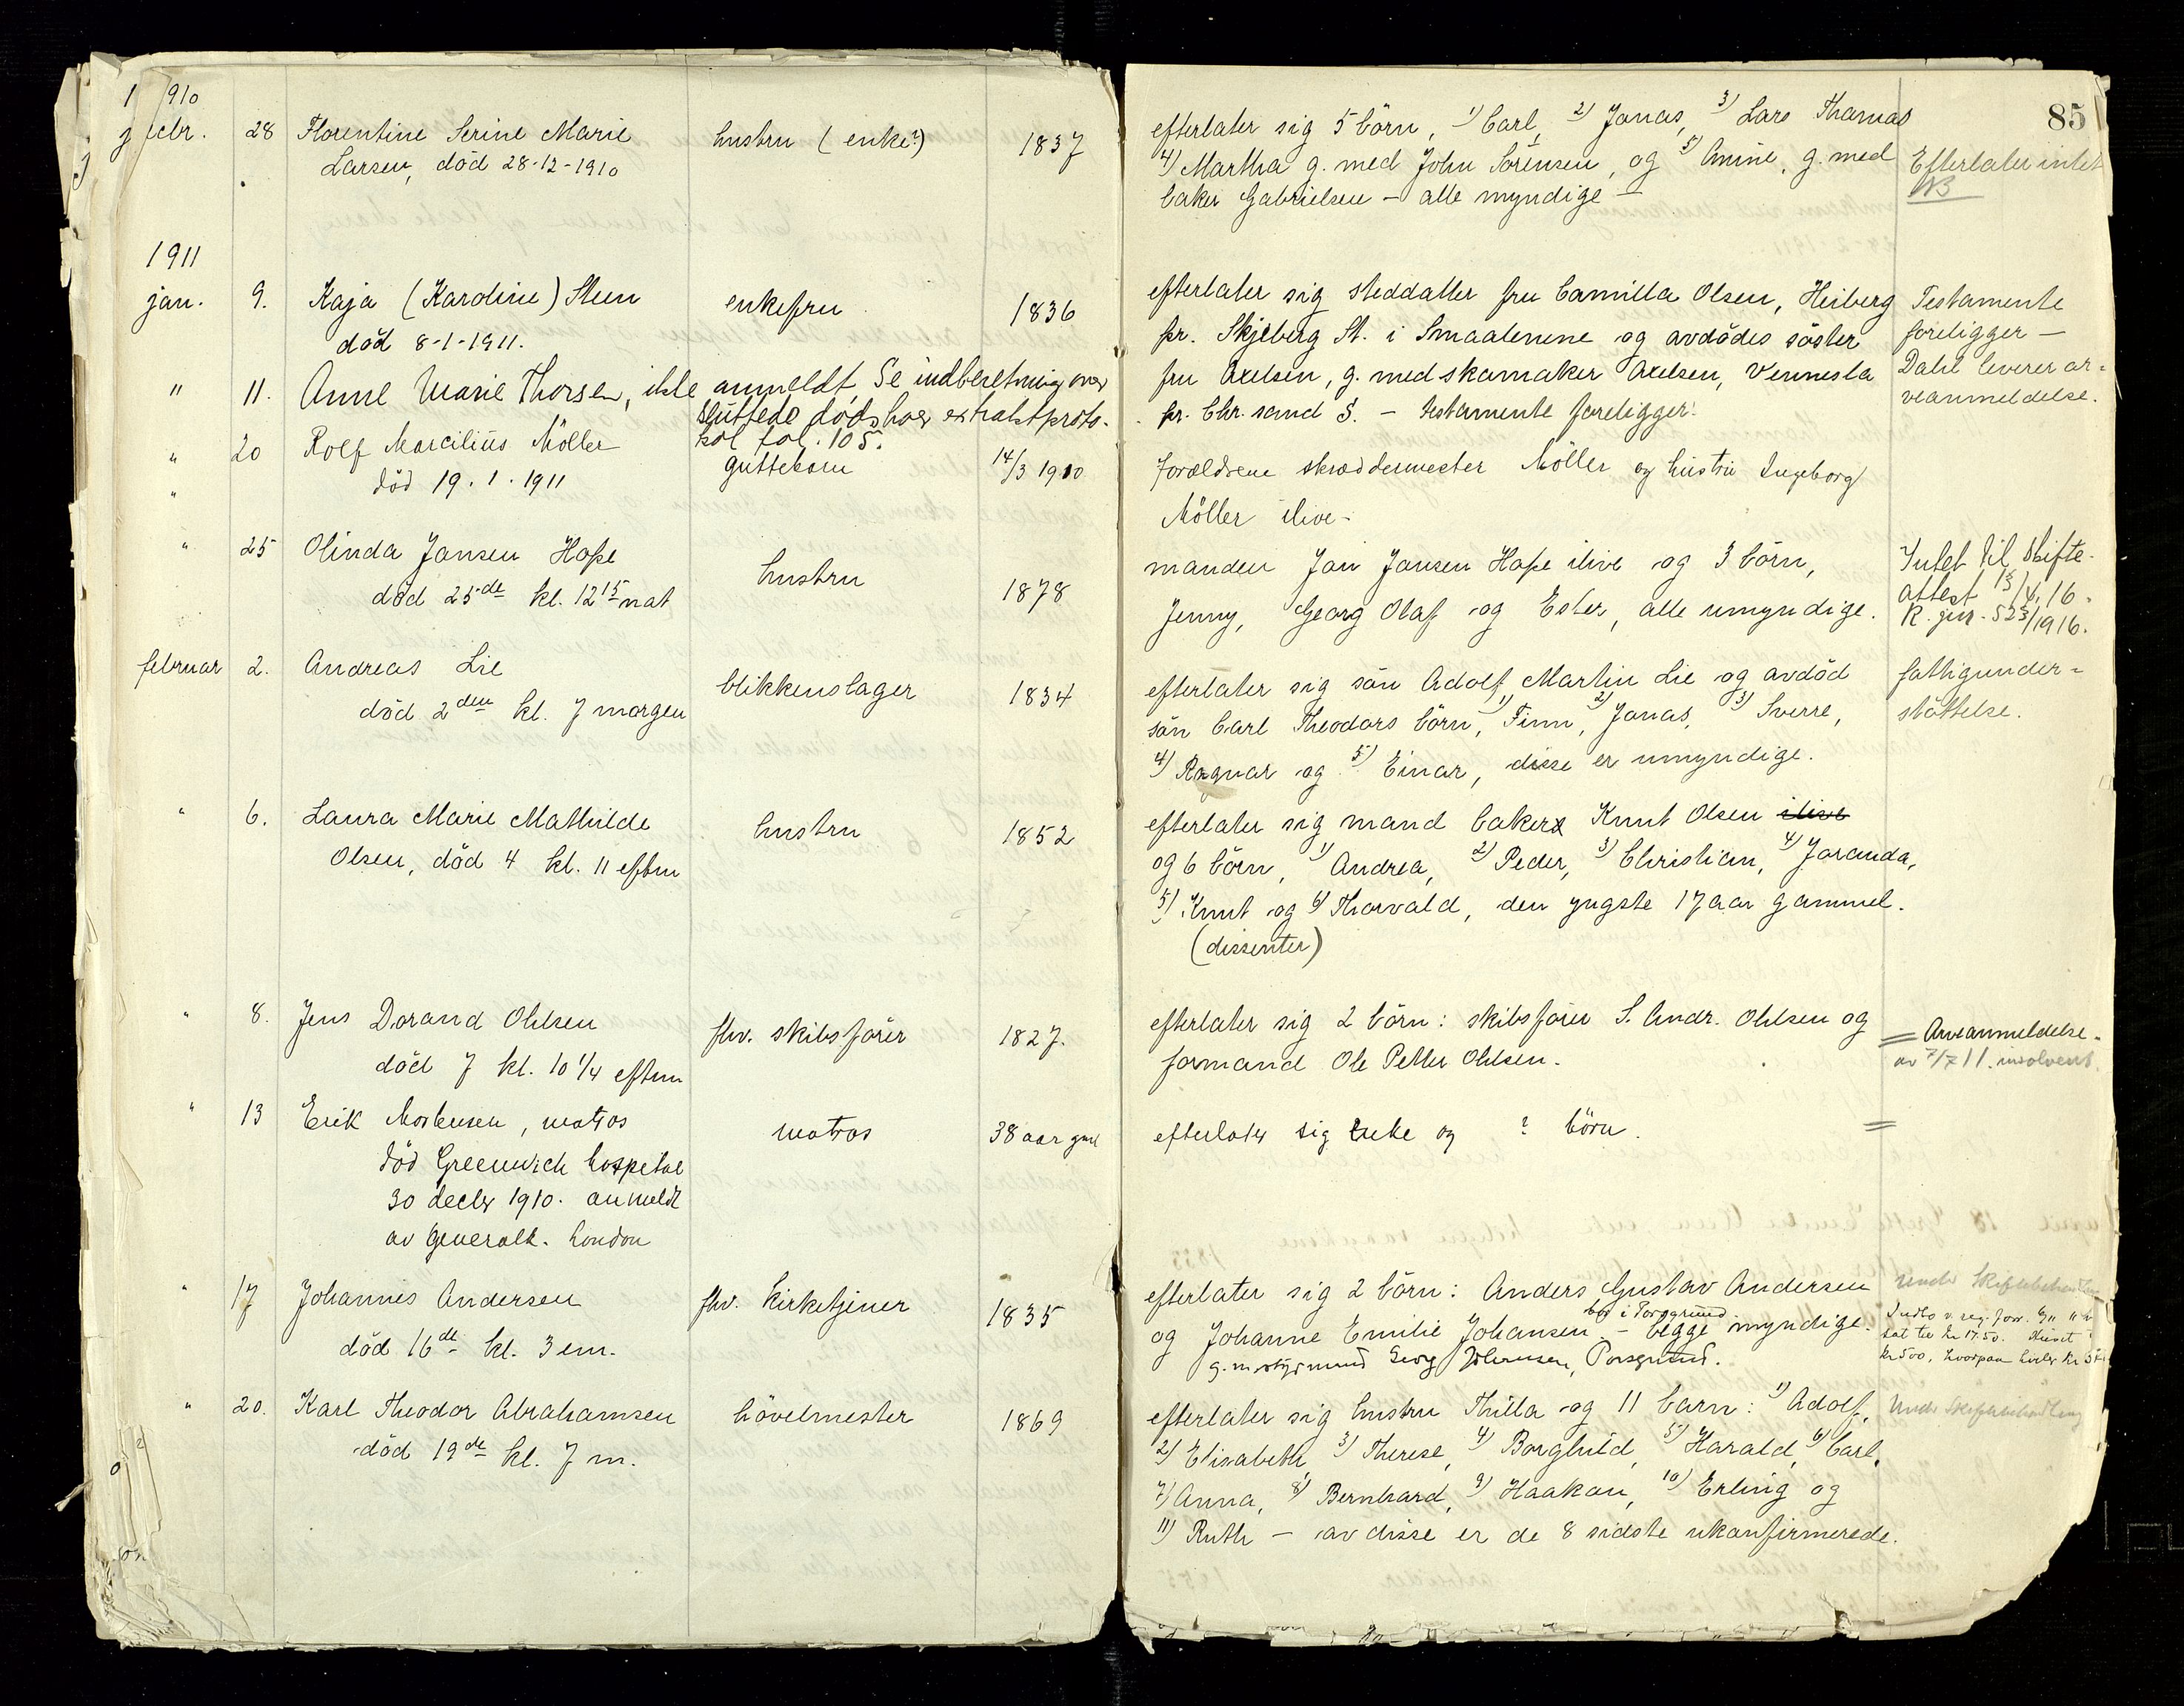 85
1910
decbr. 28 Florentine Serine Marie hustru (enke?) 1837 efterlater sig 5 börn, 1) Carl, 2) Jonas, 3) Lars Thomas
Larsen, död 28-12-1910 4) Martha g. med John Sörensen, og 5) Amine, g. med Efterlater intet
baker Gabrielsen - alle myndige -
1911
jan. 9. Kaja (Karoline) Steen enkefru 1836 efterlater sig steddatter fru Camilla Olsen, Heiberg Testamente
död 8-1-1911. pr. Skjeberg St. i Smaalenene og avdödes söster foreligger -
" 11. Anne Marie Thorsen, ikke anmeldt, Se indberetning over fru Axelsen, g. med skomaker Axelsen, Vennesla Dahl leverer ar-
sluttede dödsboer extraktproto- pr. Chr. sand S. - testamente foreligger! veanmeldelse.
kol fol. 105.
" 20 Rolf Marcilius Möller guttebarn 14/3 1910 Forældrene skræddermester Möller og hustru Ingeborg
" död 19.1.1911 Möller ilive-
" 25 Olinda Jansen Hope hustru 1878 manden Jan Jansen Hope ilive og 3 börn, Intet til skifte-
död 25de kl. 12 15 nat Jenny, Georg Olaf og Ester, alle umyndige. attest 13/4.16.
K. jur. 523/1916.
februar 2. Andreas Lie blikkenslager 1834 efterlater sig sön Adolf Martin Lie og avdöd fattigunder-
död 2den kl. 7 morgen sön Carl Theodors börn, 1) Finn, 2) Jonas, 3) Sverre, stöttelse.
4) Ragnar og 5) Einar, disse er umyndige.
" 6. Laura Marie Mathilde hustru 1852 efterlater sig mand baker Knut Olsen ilive
Olsen, död 4 kl. 11 eftm og 6 börn, 1) Andrea, 2) Peder, 3) Christian, 4) Joranda,
5) Knut og 6) Thorvald, den yngste 17 aar gammel.
(dissenter)
" 8. Jens Dorand Ohlsen fhv. skibsförer 1827. efterlater sig 2 börn: skibsförer S. Andr. Ohlsen og = Arveanmeldelse.
död 7 kl. 10 1/4 eftm formand Ole Petter Ohlsen. av 7/7 11. insolvent.
" 13 Erik Mortensen, matros matros 38 aar gml efterlater sig enke og ? börn. =
död Greenwich hospital
30 decbr 1910. anmeldt
av Generalk. London
" 17 Johannes Andersen fhv. kirketjener 1835 efterlater sig 2 börn: Anders Gustav Andersen Under Skiftebehandling
död 16de kl. 3 em. og Johanne Emilie Johansen bor i Porsgrund - begge myndige.
g. m. styrmand Georg Johansen, Porsgrund. kr 500, hvorpaa
" 20. Karl Theodor Abrahamsen hövelmester 1869 efterlater sig hustru Thilla og 11 barn: 1) Adolf, Under Skiftebehandling
död 19de kl. 7 m. 2) Elisabeth, 3) Therese, 4) Borghild, 5) Harald, 6) Carl,
7) Anna, 8) Bernhard, 9) Haakon, 10) Erling og
11) Ruth - av disse er de 8 sidste ukonfirmerede.